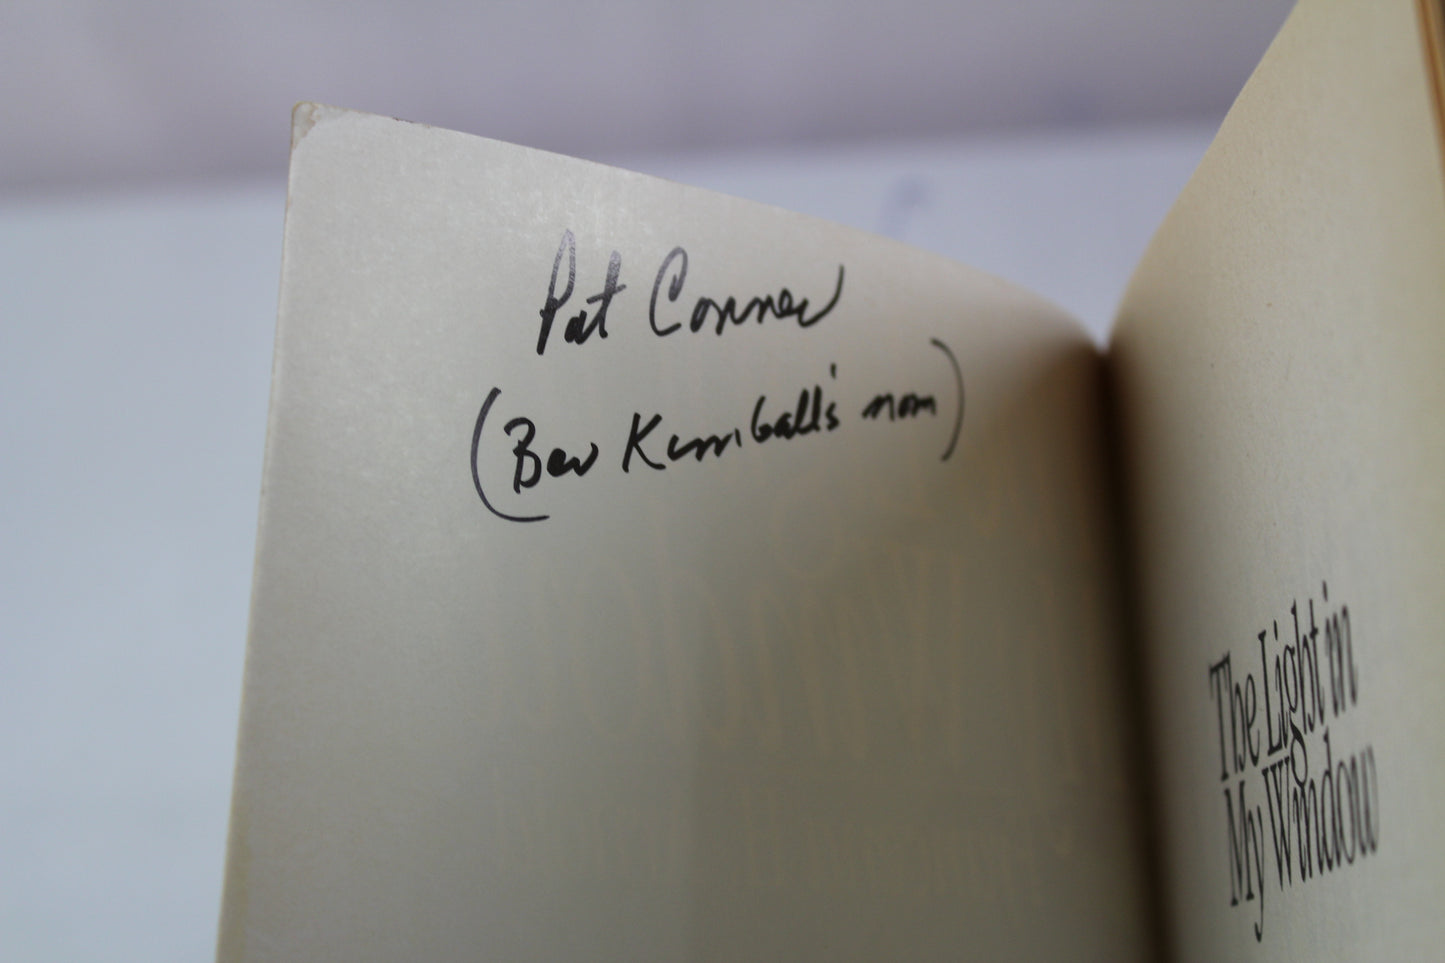 Pat Conner
(Bev Kimball's mom)
The Light in
My Window